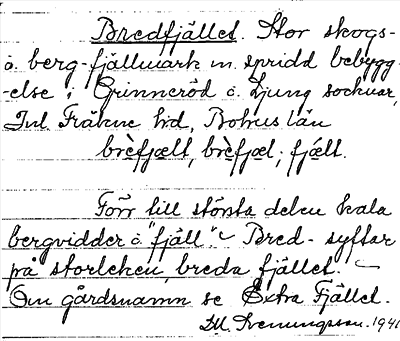 Bredfjället. Stor skogs-
o. berg-fjällmark m. spridd bebygg-
-else i Grinneröd o. Ljung socknar,
Inl. Fräkne hd, Bohus län
brèfjælt, brèfjæl; fjælt.
Förr till största delen kala
bergvidder o. "fjäll". Bred- syftar
på storleken, breda fjället.
Om gårdsnamn se Extra Fjället.
Hl. Svenungsson. 1941